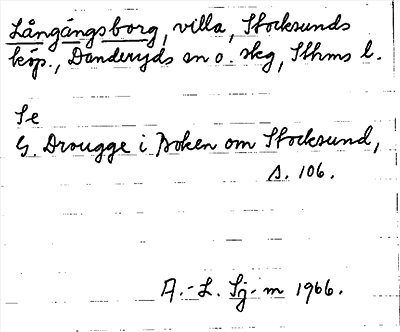 Långängsborg, villa, Stocksunds
köp., Danderyds sn o. skg, Sthms l.
Se
G. Drougge i Boken om Stocksund,
s. 106.
A.-L. Sj-m 1966.